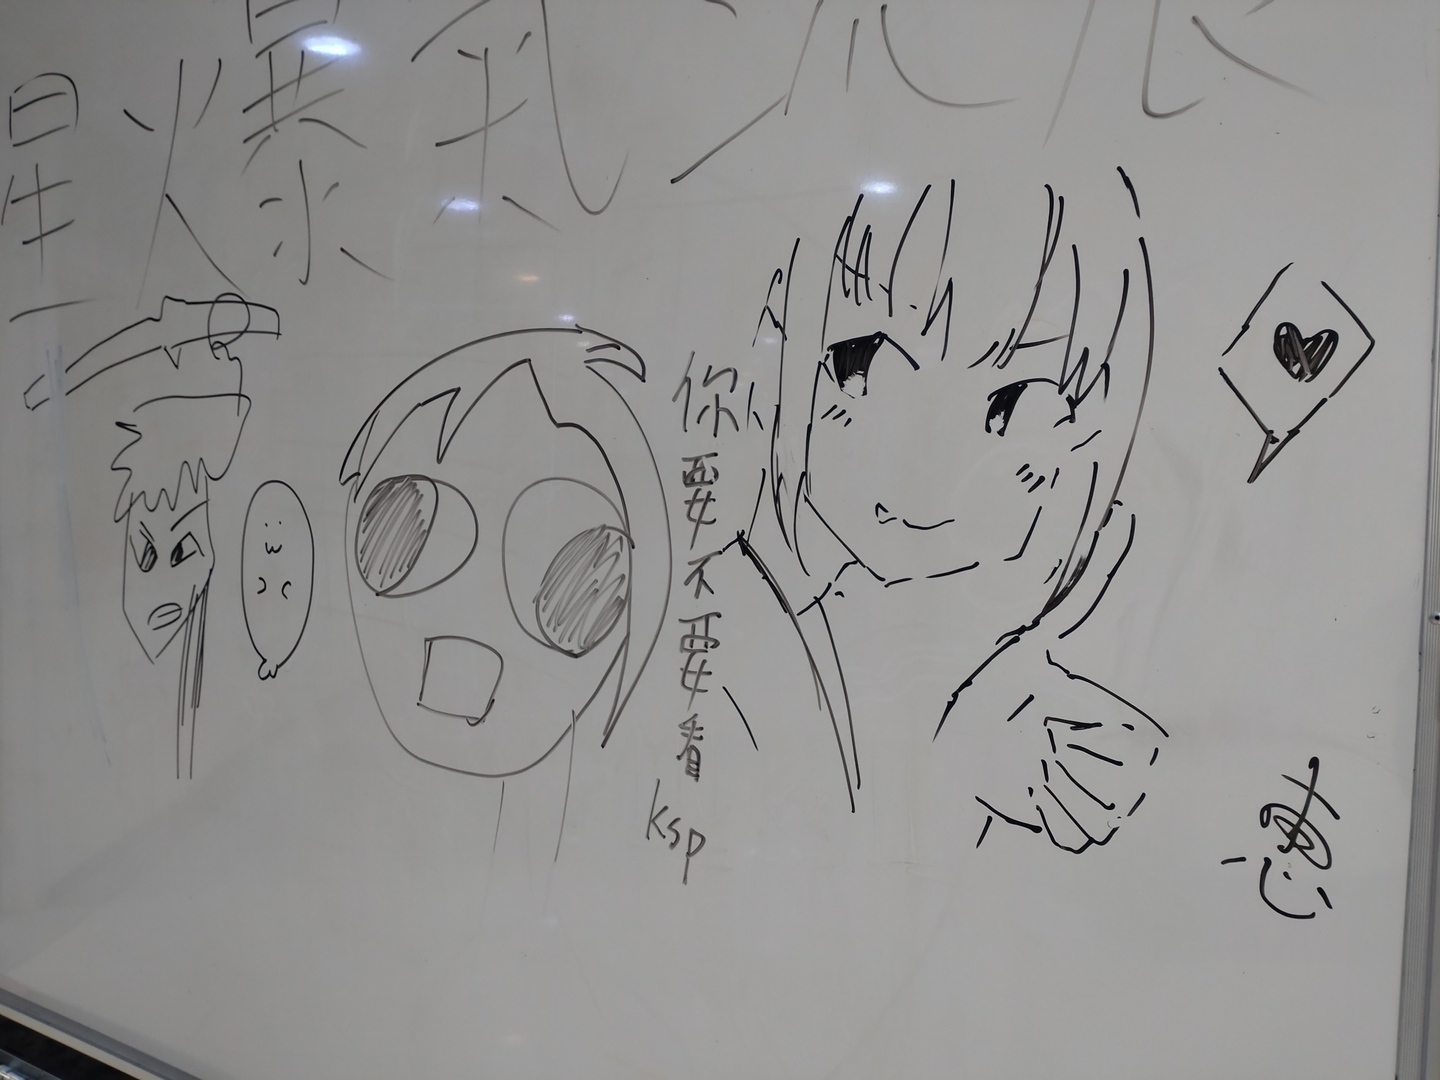 星爆氣流
你要不要看
ksp
恵